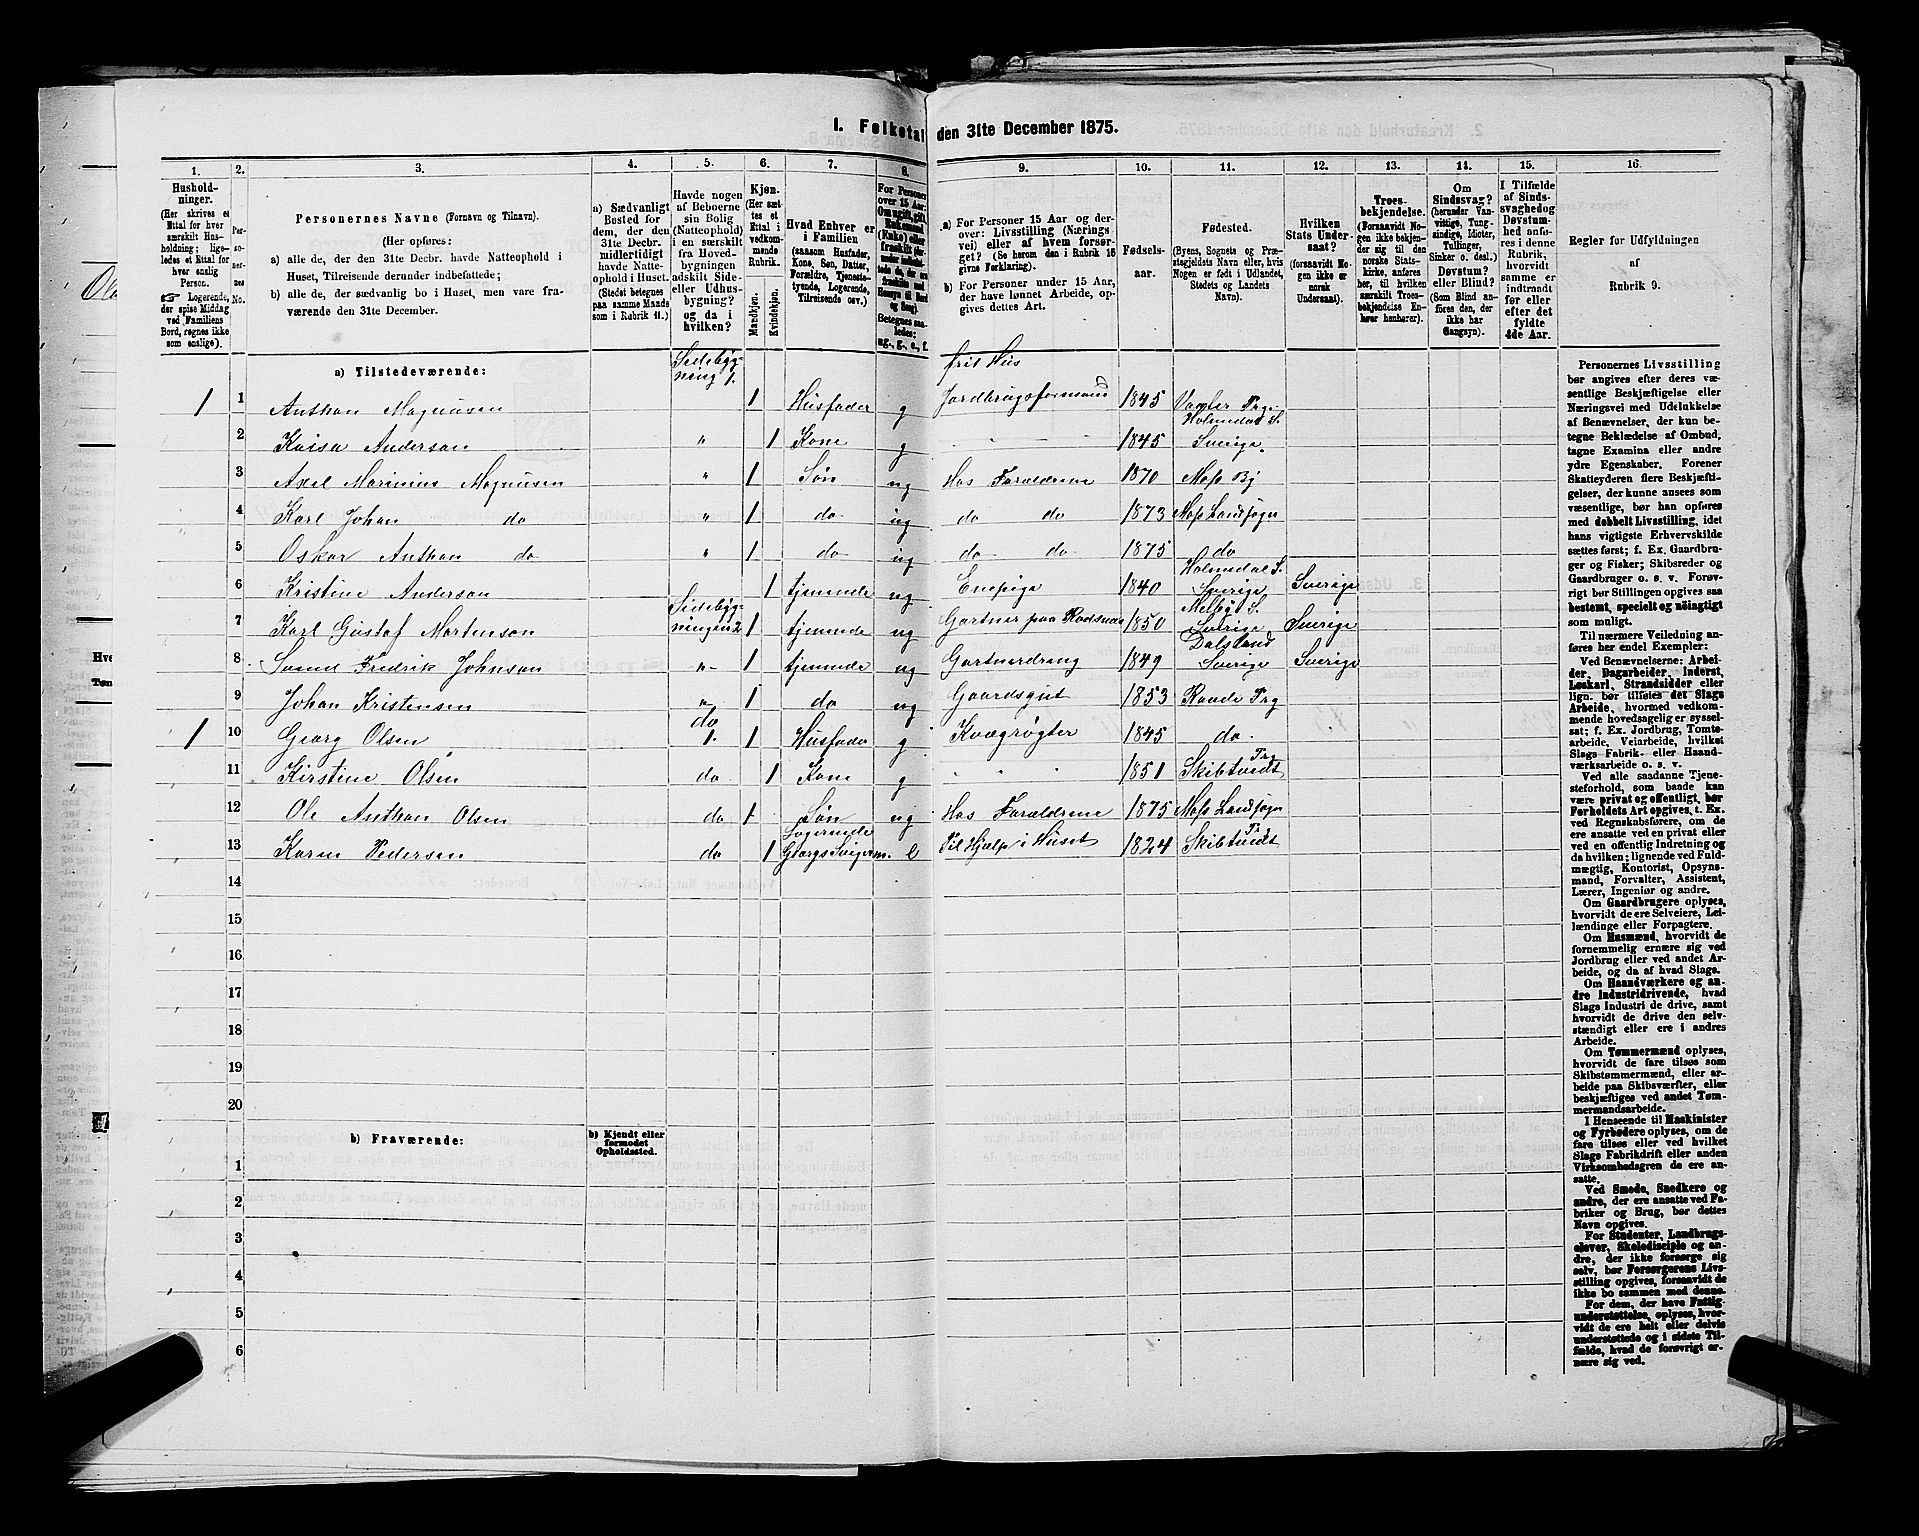 1. Folketal den 31te December 1875.
1. 2. 3. 4. 5. 6. 7. 8. 9. 10. 11. 12. 13. 14. 15. 16.
Husholdninger.
(Her skrives et Ettal for hver særskilt Husholdning; ligeledes et Ettal for hver enslig Person.
Logerende, der spise Middag ved Familiens Bord, regnes ikke som enslige).
Personernes No.
Personernes Navne (Fornavn og Tilnavn).
(Her opføres:
a) alle de, der den 31te Decbr. havde Natteophold i Huset, Tilreisende derunder indbefattede;
b) alle de, der sædvanlig bo i Huset, men vare fraværende den 31te December.
a) Sædvanligt Bosted for dem, der den 31te Decbr. midlertidigt havde Natteophold i Huset. (Stedet betegnes paa samme Maade som i Rubrik 11.)
Havde nogen af Beboerne sin Bolig (Natteophold) i en særskilt fra Hovedbygningen adskilt Side- eller Udhusbygning? og da i hvilken?
Kjøn. (Her sættes et Ettal i vedkommende Rubrik.
Mandkjøn.
Kvindekjøn.
Hvad Enhver er i Familien
(saasom Husfader, Kone, Søn, Datter, Forældre, Tjenestetyende, Logerende, Tilreisende osv.)
a) For Personer 15 Aar og derover: Livsstilling (Næringsvei) eller af hvem forsørget? (Se herom den i Rubrik 16 givne Forklaring).
b) For Personer under 15 Aar, der have lønnet Arbeide, opgives dettes Art.
Fødselsaar.
Fødested.
(Byens, Sognets og Præstegjeldets Navn eller, hvis Nogen er født i Udlandet, Stedets og Landets Navn).
Hvilken Stats Undersaat?
(forsaavidt Nogen ikke er norsk Undersaat).
Troesbekjendelse.
(Forsaavidt Nogen ikke bekjender sig til den norske Statskirke, anføres her, til hvilket særskilt Troesbekjendelse Enhver henhører).
Om Sindssvag?
(herunder Vanvittige, Tungsindige, Idioter, Tullinger, Sinker o. desl.)
Døvstum? eller Blind?
(Som Blind anføres den, der ikke har Gangsyn).
I Tilfælde af Sindssvaghed og Døvstumhed anføres i denne Rubrik, hvorvidt samme er indtraadt før eller efter det fyldte 4de Aar.
Regler for Udfyldningen
af
Rubrik 9.
a) Tilstedeværende: Sidebygning 1. frit Hus
1 1 Anthon Magnusen 1 Husfader g Jordbrugsformand 1845
2 Kaisa Anderson " 1 Kone g 1845 Holmedal S. Sverige.
3 Axel Marinius Magnusen " 1 Søn ug Hos Forældrene 1870 Moss By
4 Karl Johan do " 1 do ug do do 1873 Moss Landsogn
5 Oskar Anthon do " 1 do ug do do 1875 do
6 Kristine Anderson 1 tjenende ug Enepige 1840 Holmedal S. Sverige Sverige
7 Karl Gustaf Mortenson Sidebygningen 2 1 tjenende ug Gartner paa 1850 Melby S. Sverige Sverige
8 Svend Fredrik Johnson " 1 tjenende ug Gartnerdreng 1849 Dalsland Sverige Sverige
9 Johan Kristensen " 1 do ug Gaardsgut 1853 Raade Prg
1 10 Georg Olsen do 1. 1 Husfader g Kvægrøgter 1845 do
11 Kirstine Olsen do 1 Kone g " " " 1851 Skibtvedt Prg
12 Ole Anthon Olsen do 1 Søn ug Hos Forældrene 1875 Moss Landsogn
13 Karen Pedersen do 1 Logerende Georgs Svigerm. e Til Hjælp i Huset 1824 Skibtvedt
14
15
16
17
18
19
20
b) Fraværende: b) Kjendt eller formodet Opholdssted.
1
2
3
4
5
6
Personernes Livsstilling
bør angives efter deres væ-
sentlige Beskjæftigelse eller
Næringsvei med Udelukkelse
af Benævnelser, der kun be-
tegne Beklædelse af Ombud,
tagne Examina eller andre
ydre Egenskaber. Forener
Skatteyderen flere Beskjæfti-
gelser, der kunne ansees som
væsentlige, bør han opføres
med dobbelt Livsstilling, idet
hans vigtigste Erhvervskilde
sættes først; f. Ex. Gaardbru-
ger og Fisker; Skibsreder og
Gaardbruger o. s. v. Forøv-
rigt bør Stillingen opgives saa
bestemt, specielt og nøiagtigt
som muligt.
Til nærmere Veiledning an-
føres her endel Exempler:
Ved Benævnelserne: Arbei-
der, Dagarbeider, Inderst,
Løskarl, Strandsidder eller
lign. bør tilføies det Slags
Arbeide, hvormed vedkom-
mende hovedsagelig er syssel-
sat; f. Ex. Jordbrug, Tomte-
arbeide, Veiarbeide, hvilket
Slags Fabrik- eller Haand-
værksarbeide o. s. v.
Ved alle saadanne Tjene-
steforhold, som baade kan
være privat og offentligt, bør
Forholdets Art opgives, t. Ex.
ved Regnskabsførere, om de
ere ansatte ved en privat eller
ved en offentlig Indretning og
da hvilken; lignende ved Fuld-
mægtig, Kontorist, Opsyns-
mand, Forvalter, Assistent,
Lærer, Ingeniør og andre.
Om Gaardbrugere oplyses,
hvorvidt de ere Selveiere, Lei-
lændinge eller Forpagtere.
Om Husmænd, hvorvidt de
fornemmelig ernære sig ved
Jordbrug eller ved andet Ar-
beide, og da af hvad Slags.
Om Haandværkere og an-
dre Industridrivende, hvad
Slags Industri de drive, samt
hvorvidt de drive den selv-
stændigt eller ere i andres
Arbeide.
Om Tømmermænd oplyses,
hvorvidt de fare tilsøs som
Skibstømmermænd, eller ar-
beide paa Skibsværfter, eller
beskjæftiges ved andet Tøm-
mermandsarbeide.
I Henseende til Maskinister
og Fyrbødere oplyses, om de
fare tilsøs eller ved hvilket
Slags Fabrikdrift eller anden
Virksomhedsgren de ere an-
satte.
Ved Smede, Snedkere og
andre, der ere ansatte ved Fa-
briker og Brug, bør dettes
Navn opgives.
For Studenter, Landbrugs-
elever, Skoledisciple og an-
dre, der ikke forsørge sig
selv, bør Forsørgerens Livs-
stilling opgives, forsaavidt de
ikke bo sammen med denne.
For dem, der have Fattig-
understøttelse, oplyses, hvor-
vidt de ere helt eller delvis
understøttede og i sidste Til-
fælde, hvad de forøvrigt er-
nære sig ved.